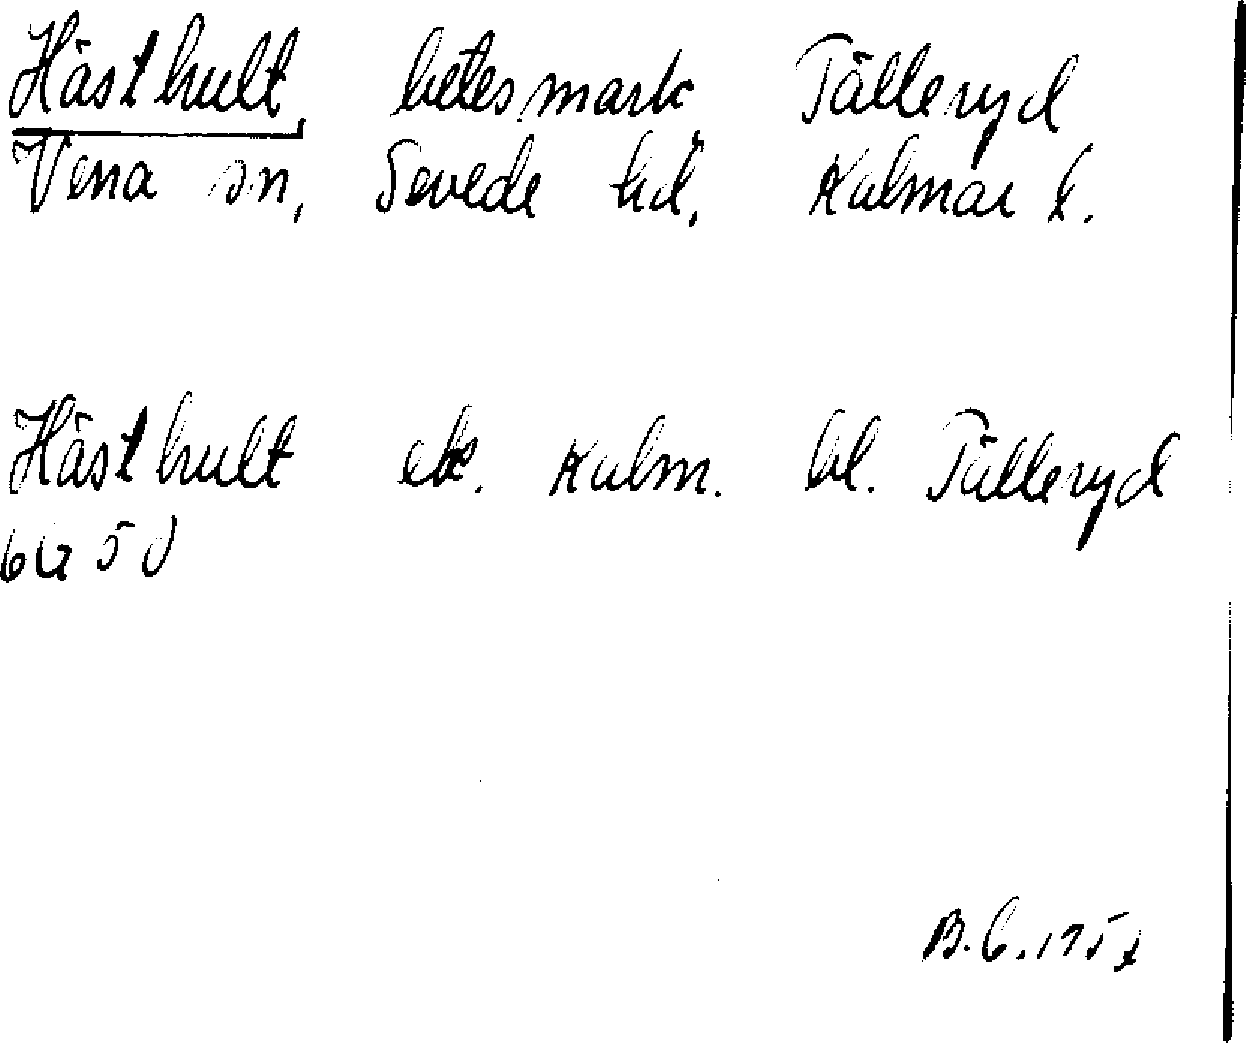 Hästhult, betesmark Tälleryd
Vena sn, Sevede hd, Kalmar l.
Hästhult ek. Kalm. bl. Tälleryd
6G 5d